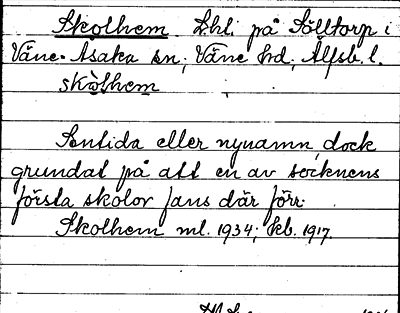 Skolhem Lhl. på Sålltorp i
Väne-Åsaka sn, Väne hd, Älfsb. l.
skòlhem
Sentida eller nynamn, dock
grundat på att en av socknens
första skolor fans där förr.
Skolhem ml. 1934; kb. 1917.